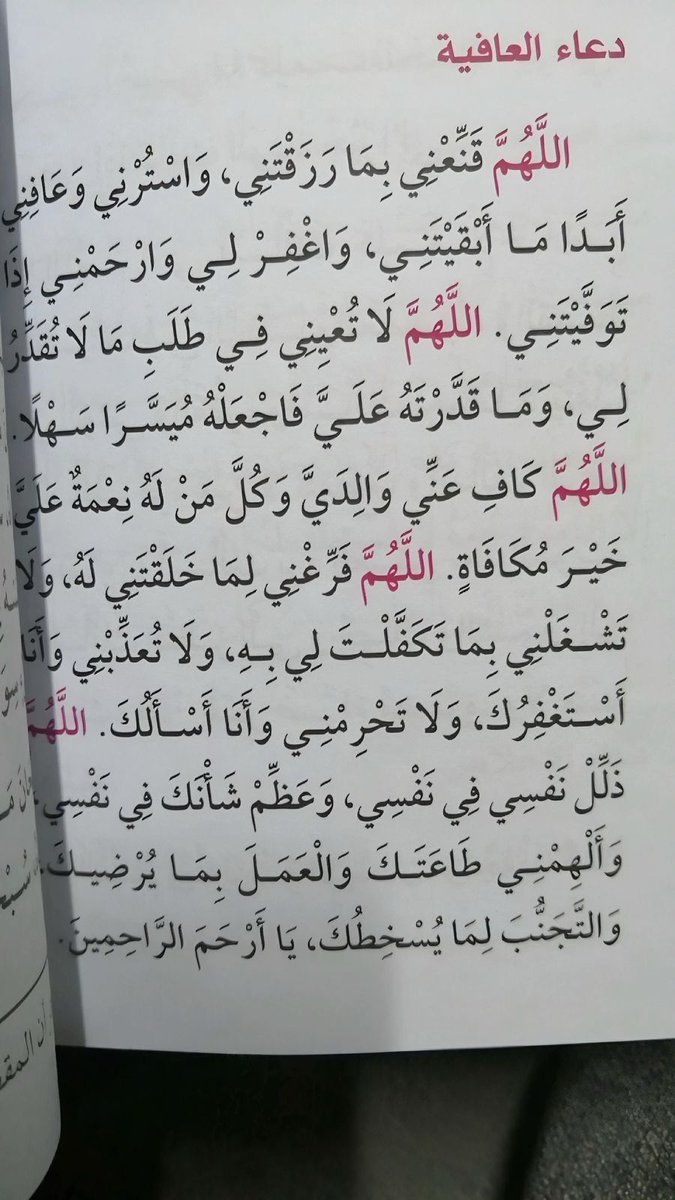 دعاء العافية
اللَّهُمَّ قَنِّعْنِي بِمَا رَزَقْتَنِي، وَاسْتُرْنِي وَعَافِنِي
أَبَـدًا مَـا أَبْقَيْتَنِـي، وَاغْفِـرْ لِـي وَارْحَمْنِـي إِذَا
تَوَفَّيْتَنِـي. اللَّهُمَّ لَا تُعْيِنِي فِـي طَلَبِ مَا لَا تُقَدِّرُ
لِـي، وَمَـا قَدَّرْتَهُ عَلَـيَّ فَاجْعَلْهُ مُيَسَّـرًا سَـهْلًا.
اللَّهُمَّ كَافِ عَنِّي وَالِدَيَّ وَكُلَّ مَنْ لَهُ نِعْمَةٌ عَلَيَّ
خَيْـرَ مُكَافَاةٍ. اللَّهُمَّ فَرِّغْنِي لِمَا خَلَقْتَنِي لَهُ، وَلَا
تَشْـغَلْنِي بِمَا تَكَفَّلْـتَ لِي بِـهِ، وَلَا تُعَذِّبْنِي وَأَنَا
أَسْـتَغْفِرُكَ، وَلَا تَحْرِمْنِـي وَأَنَا أَسْـأَلُكَ. اللَّهُمَّ
ذَلِّلْ نَفْسِي فِي نَفْسِي، وَعَظِّمْ شَأْنَكَ فِي نَفْسِي،
وَأَلْهِمْنِـي طَاعَتَـكَ وَالْعَمَـلَ بِمَـا يُرْضِيـكَ.
وَالتَّجَنُّبَ لِمَا يُسْخِطُكَ، يَا أَرْحَمَ الرَّاحِمِينَ.